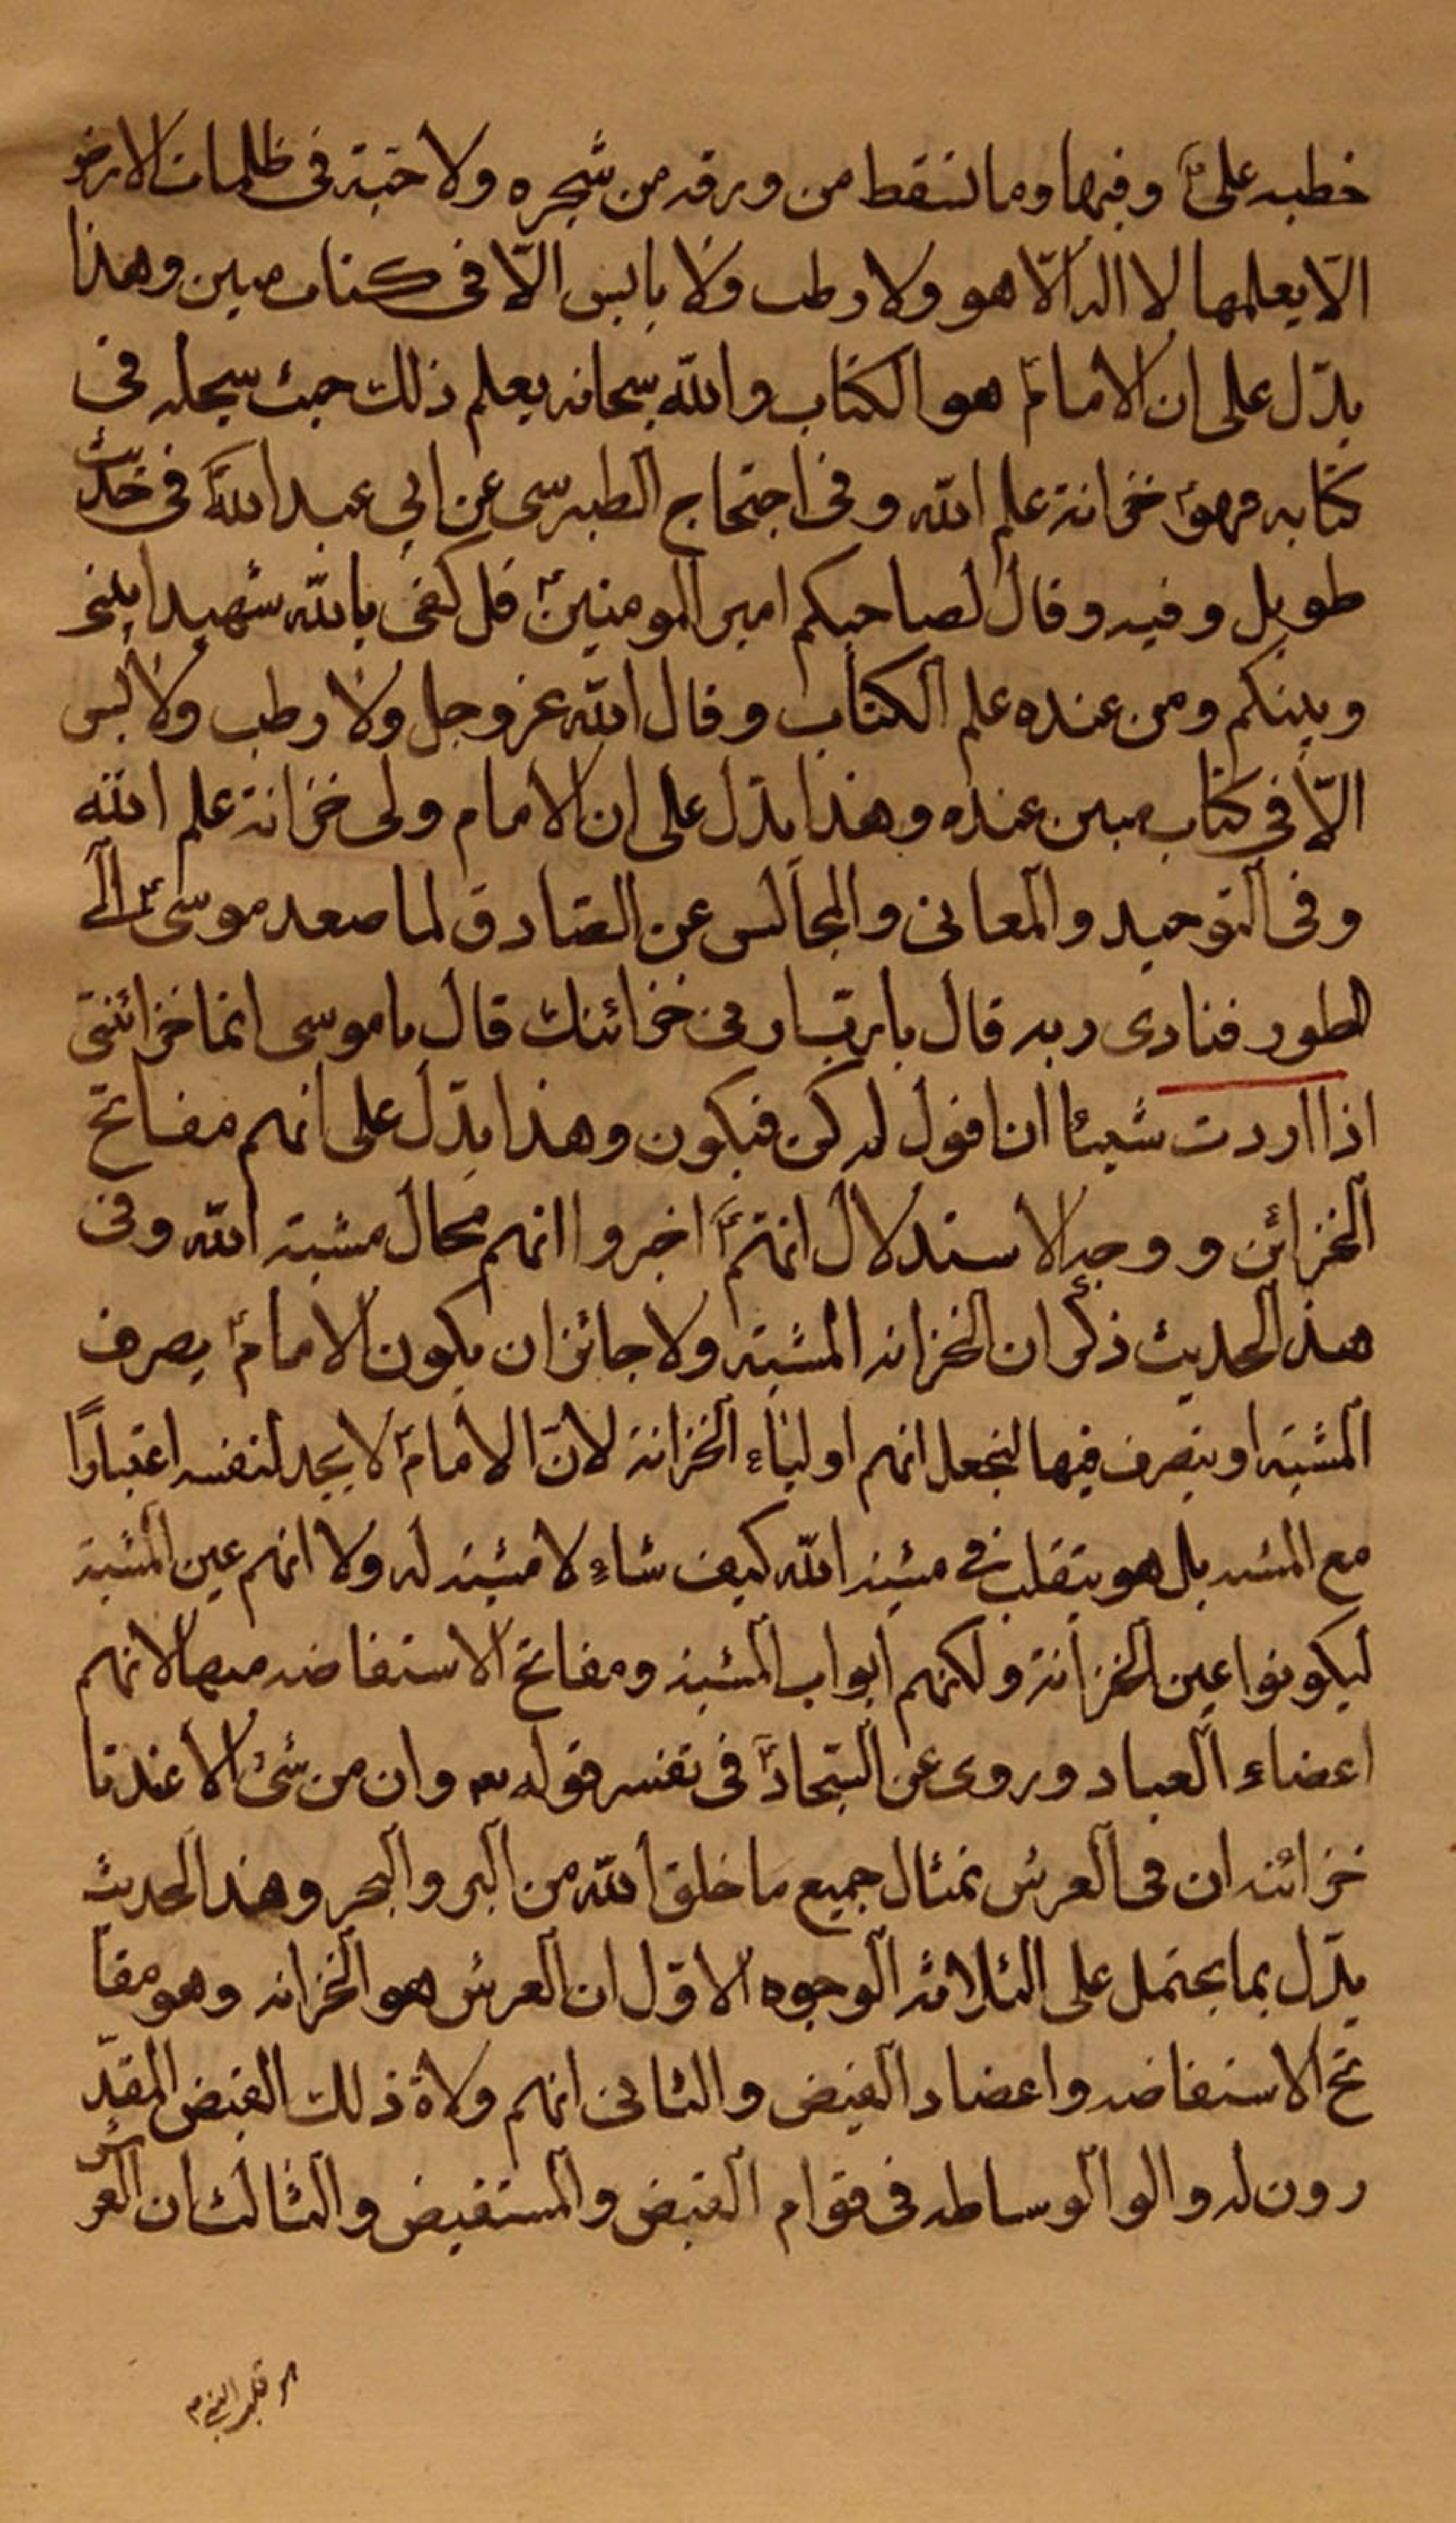 خطبه علىؑ وفيها وما تسقط من ورقه من شجره ولا حبة فى ظلمات الارض
الّا يعلمها لا اله الّا هو ولا رطب ولا يابس الّا فى كتاب مبين وهذا
يدّل على ان الامامؑ هو الكتاب والله سبحانه يعلم ذلك حيث سجله فى
كتابه فهوؑ خزانة علم الله وفى احتجاج الطبرسى عن ابى عبد اللهؑ فى حديث
طويل وفيه وقال لصاحبكم امير المومنينؑ قل كفى بالله شهيدا بينى
وبينكم ومن عنده علم الكتاب وقال الله عز وجل ولا رطب ولا يابس
الّا فى كتاب مبين عنده وهذا يدّل على ان الامام ولى خزانة علم الله
وفى التوحيد والمعانى والمجالس عن الصّادق لما صعد موسىؑ الى
الطور فنادى ربه قال يا ربّ ارنى خزائنك قال يا موسى انما خزائنى
اذا اردت شيئا ان اقول له كن فيكون وهذا يدّل على انهم مفاتح
الخزائن ووجه الاستدلال انهمؑ اخبروا انهم محال مشية الله وفى
هذا الحديث ذكر ان الخزانه المشية ولا جائز ان يكون الامامؑ يصرف
المشية او يتصرف فيها لنجعل انهم اولياء الخزانة لانّ الامامؑ لا يجد لنفسه اعتبارًا
مع المشيه بل هو يتقلب فى مشية الله كيف شاء لا مشية له ولا انهم عين المشية
ليكونوا عين الخزانة ولكنهم ابواب المشية ومفاتح الاستفاضه منها لانهم
اعضاء العباد وروى عن السّجادؑ فى تفسير قوله تعـ وان من شئ الا عندنا
خزائنه ان فى العرش تمثال جميع ما خلق الله من البر والبحر وهذا الحديث
يدّل بما يحتمل على الثلاثه الوجوه الاوّل ان العرش هو الخزانه وهو مفا
تح الاستفاضه واعضاد الفيض والثانى انهم ولاة ذلك الفيض المقدّ
رون له والو الوساطه فى قوام الفيض والمستفيض والثالث ان العرش